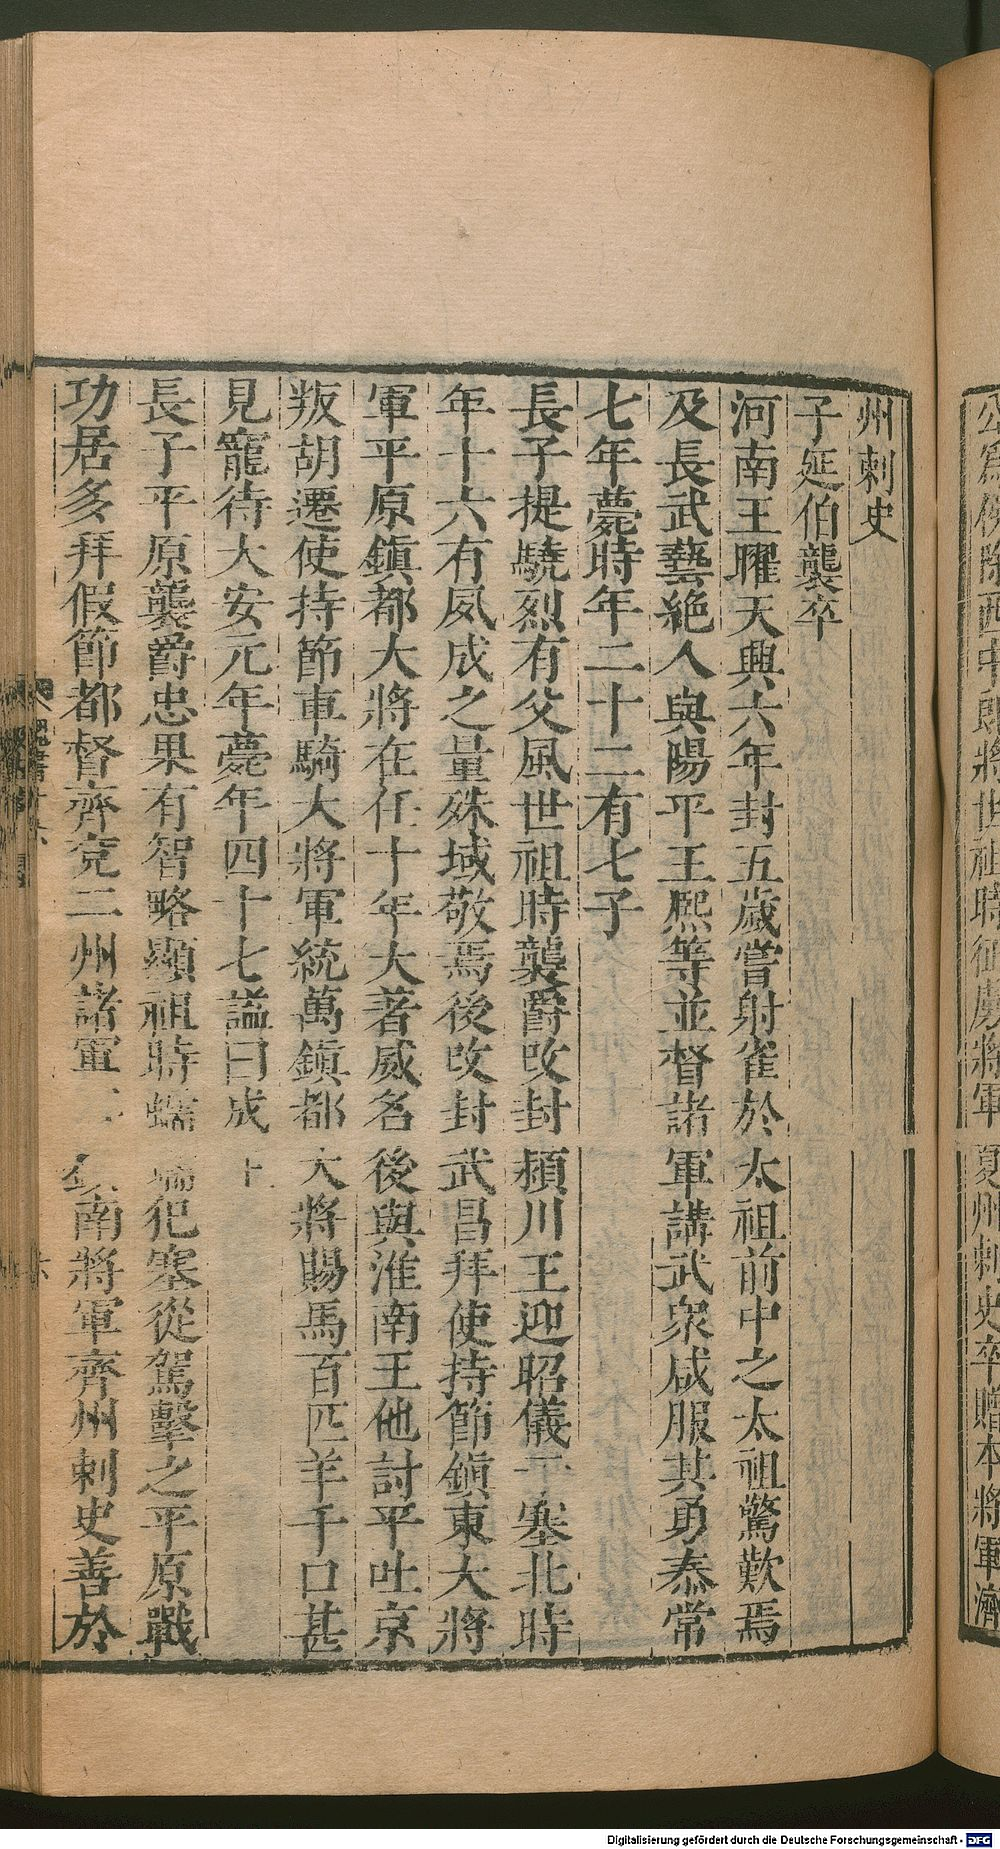 公爲侯除西中郎將世祖時征虜將軍夏州刺史卒贈本將軍濟
州刺史
子延伯襲卒
河南王曜天興六年封五歲嘗射雀於太祖前中之太祖驚歎焉
及長武藝絶人與陽平王熙等並督諸軍講武衆咸服其勇泰常
七年薨時年二十二有七子
長子提驍烈有父風世祖時襲爵改封潁川王迎昭儀于塞北時
年十六有夙成之量殊域敬焉後改封武昌拜使持節鎮東大將
軍平原鎮都大將在任十年大著威名後與淮南王他討平吐京
叛胡遷使持節車騎大將軍統萬鎮都大將賜馬百匹羊千口甚
見寵待大安元年薨年四十七謚曰成
長子平原襲爵忠果有智略顯祖時蠕蠕犯塞從駕擊之平原戰
功居多拜假節都督齊兗二州諸軍南將軍齊州刺史善於
魏書十六
Digitalisierung gefördert durch die Deutsche Forschungsgemeinschaft - DFG